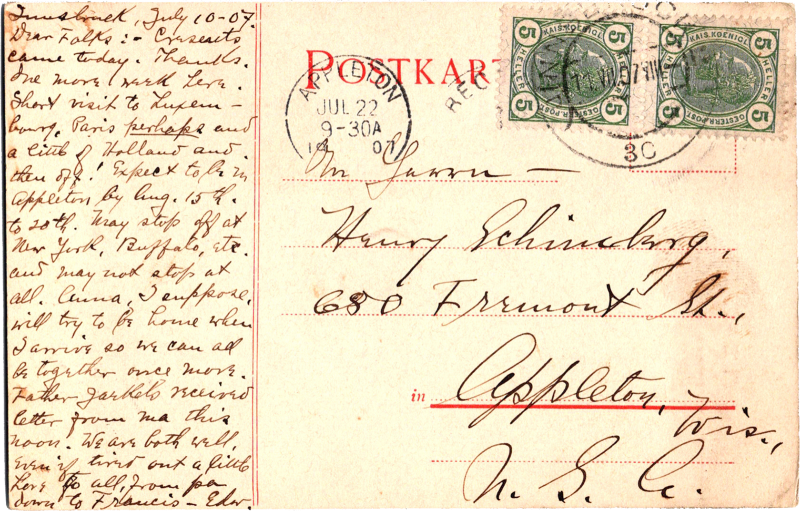 Innsbruck, July 10-07.
Dear Folks :- Cresents
came today. Thanks.
One more week here.
Short visit to Luxem-
bourg, Paris perhaps and
a little of Holland and
then off! Expect to be in
Appleton by Aug. 15th.
to 20th. May stop off at
New York, Buffalo, etc.
and may not stop at
all. Anna, I suppose,
will try to be home when
I arrive so we can all
be together once more.
Father received
letter from ma this
noon. We are both well,
even if tired out a little
Love to all, from pa
down to Francis - Edw.
POSTKART
APPLETON
JUL 22
9-30A
07
REC
5 KAIS. KOENIGL. 5
HELLER HELLER
5 OESTERR. POST 5
5 KAIS. KOENIGL. 5
HELLER HELLER
5 OESTERR. POST 5
3C
Henry Schineborg,
680 Fremont St.,
in Appleton, Wis.,
U. S. A.